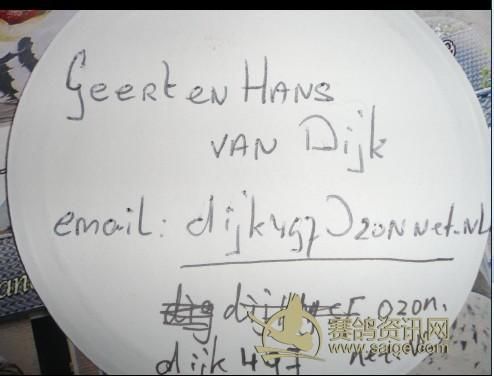 GEERT EN HANS
VAN Dijk
email: dijk497 ozonnet.NL
ozon.
dijk 497 net.
赛鸽资讯网
www.saige.com